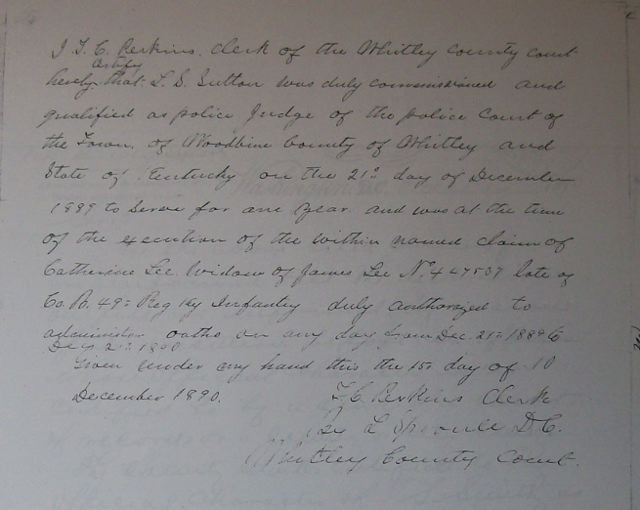 I T. C. Perkins, clerk of the Whitley county court
certify
hereby that L. S. Sutton was duly commissioned and
qualified as police Judge of the police Court of
the Town of Woodbine County of Whitley and
State of Kentucky on the 21st day of December
1889 to serve for one year and was at the time
of the execution of the within named claim of
Catherine Lee Widow of James Lee No 447537 late of
Co. B. 49th Reg Ky Infantry duly authorized to
administer oaths on any day from Dec. 21st 1889 to
Dec 21st 1890
Given under my hand this the 15th day of
December 1890.
T. C. Perkins Clerk
D.C.
Whitley County Court.